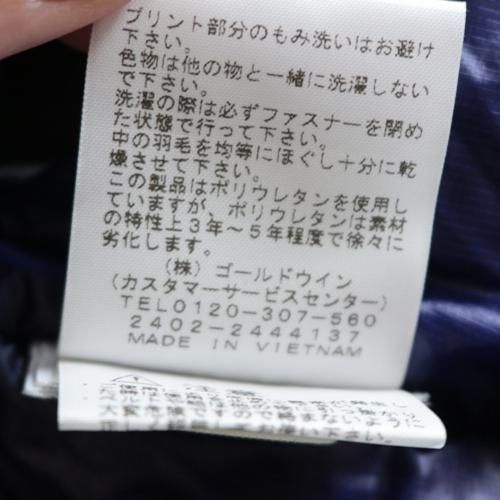 プリント部分のもみ洗いはお避け
下さい。
色物は他の物と一緒に洗濯しない
で下さい。
洗濯の際は必ずファスナーを閉め
た状態で行って下さい。
中の羽毛を均等にほぐし十分に乾
燥させて下さい。
この製品はポリウレタンを使用し
ていますが、ポリウレタンは素材
の特性上3年～5年程度で徐々に
劣化します。
(株)ゴールドウイン
(カスタマーサービスセンター)
TEL0120-307-560
2402-2444137
MADE IN VIETNAM